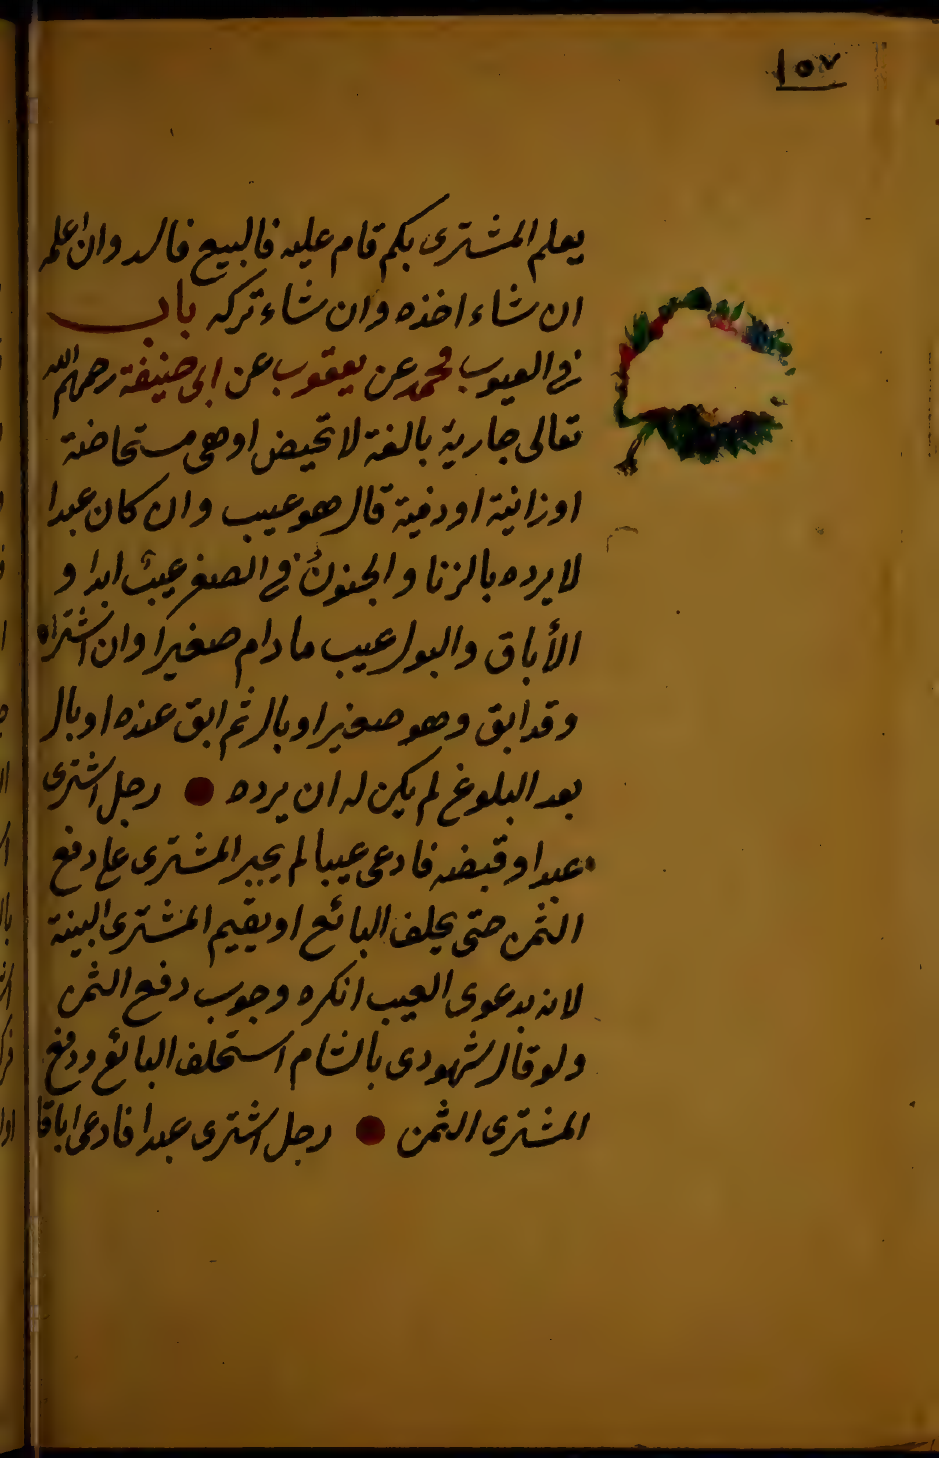 ١٥٧
يعلم المشترى بكم قام عليه فالبيع فاسد وان اعلمه
ان شاء اخذه وان شاء تركه باب
فى العيوب محمد عن يعقوب عن ابى حنيفة رحمهم الله
تعالى جارية بالغة لا تحيض او هى مستحاضة
او زانية او ذمية قال هو عيب وان كان عبدا
لا يرده بالزنا والجنون فى الصغر عيب ابدا و
الأباق والبول عيب ما دام صغيرا وان اشتراه
وقد ابق وهو صغير او بال ثم ابق عنده او بال
بعد البلوغ لم يكن له ان يرده رجل اشترى
عبدا وقبضه فادعى عيبا لم يجبر المشترى على دفع
الثمن حتى يحلف البائع او يقيم المشترى البينة
لانه بدعوى العيب انكره وجوب دفع الثمن
ولو قال شهودى بالشام استحلف البائع ودفع
المشترى الثمن رجل اشترى عبدا فادعى اباقا